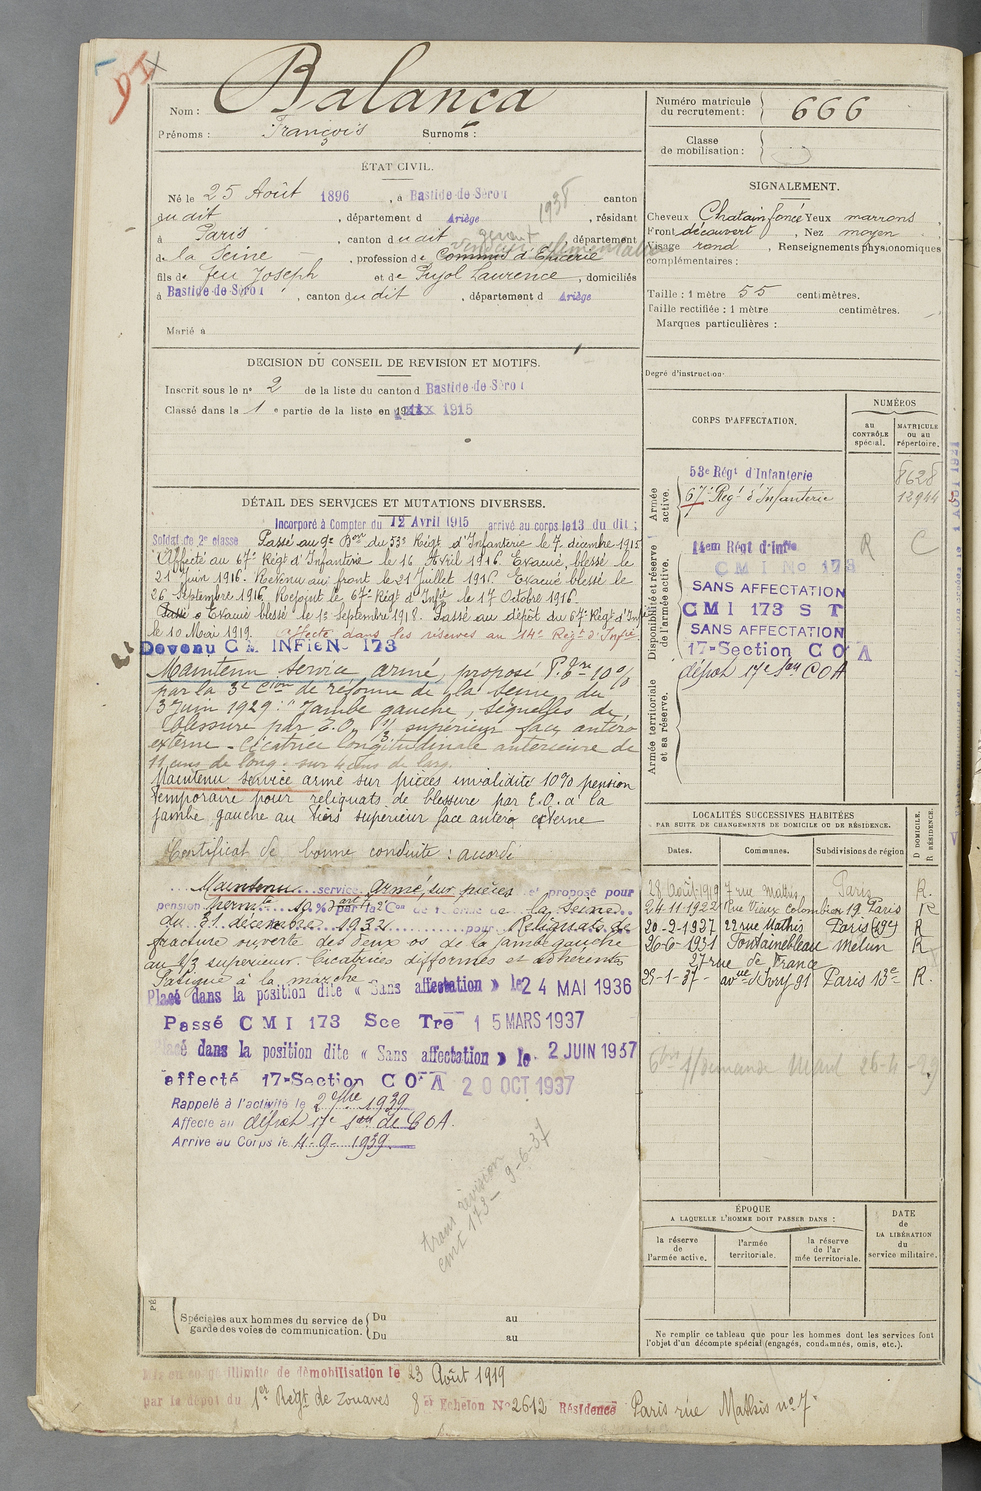 Nom : Balança
Prénoms : François Surnoms :
ÉTAT CIVIL.
Né le 25 Août 1896, à Bastide-de-Sérou canton
dudit, département d Ariège, résidant
à Paris, canton dudit, département
de la Seine, profession de Commis d'Epicerie
gérant alimentation 1938
fils de feu Joseph et de Pujol Laurence, domiciliés
à Bastide-de-Sérou, canton dudit, département d Ariège
Marié à
DECISION DU CONSEIL DE REVISION ET MOTIFS.
Inscrit sous le n° 2 de la liste du canton d Bastide-de-Sérou
Classé dans la 1e partie de la liste en 1915
DÉTAIL DES SERVICES ET MUTATIONS DIVERSES.
Incorporé à Compter du 12 Avril 1915 arrivé au corps le 13 du dit ;
Soldat de 2e classe Passé au 9e Bon du 53e Régt d'Infanterie le 7 décembre 1915
Affecté au 67e Régt d'Infanterie le 16 Avril 1916. Evacué blessé le
21 Juin 1916. Revenu aui front le 21 Juillet 1916. Evacué blessé le
26 Septembre 1916, Rejoint le 67e Régt d'Infie le 17 Octobre 1916.
Passé Evacué blessé le 13 Septembre 1918. Passé au dépôt du 67e Régt d'Infie
le 10 Mai 1919. Affecté dans les réserves au 14e Régt d'Infie
Devenu C M INFie No 173
Maintenu service armé, proposé P. 10%
par la 3e Cion de réforme de la Seine du
3 Juin 1929 : "Jambe gauche, séquelles de
blessure par E.O. 1/3 supérieur face antéro
externe - Cicatrice longitudinale antérieure de
11 cms de long sur 4 cms de larg.
Maintenu service armé sur pièces invalidité 10% pension
temporaire pour reliquats de blessure par E.O. a la
jambe gauche au tiers supérieur face antero externe
Certificat de bonne conduite : accordé
Maintenu service armé, sur pièces et proposé pour
pension permte 10 % par la 2e Con de réforme de la Seine
du 31 décembre 1932 pour Reliquats de
fracture ouverte des deux os de la jambe gauche
au 1/3 supérieur. Cicatrices difformes et adhérentes
Fatigue à la marche
Placé dans la position dite « Sans affectation » le 24 MAI 1936
Passé C M I 173 Sce Tre 15 MARS 1937
Placé dans la position dite « Sans affectation » le 2 JUIN 1937
affecté 17e Section C O A 20 OCT 1937
Rappelé à l'activité le 2 7bre 1939
Affecté au dépôt 17e Son de COA.
Arrivé au Corps le 4-9-1939
trans révision
cent 173 - 9-6-37
Spéciales aux hommes du service de garde des voies de communication. Du au
Du au
illimité de démobilisation le 23 Août 1919
par le dépôt du 1er Régt de Zouaves 8e Echelon No 2612 Résidence Paris rue Mathis no 7
Numéro matricule du recrutement : 666
Classe de mobilisation :
SIGNALEMENT.
Cheveux Chatain foncé Yeux marrons
Front découvert, Nez moyen
Visage rond, Renseignements physionomiques
complémentaires :
Taille : 1 mètre 55 centimètres.
Taille rectifiée : 1 mètre centimètres.
Marques particulières :
Degré d'instruction
CORPS D'AFFECTATION.
NUMÉROS
au CONTRÔLE spécial.
MATRICULE ou au répertoire.
Armée active.
53e Régt d'Infanterie 8628
67e Régt d'Infanterie 12944
Disponibilité et réserve de l'armée active.
14em Régt d'Infie R C
C M I No 173
SANS AFFECTATION
C M I 173 S T
SANS AFFECTATION
17e Section C O A
dépôt 17e Son COA
Armée territoriale et sa réserve.
LOCALITÉS SUCCESSIVES HABITÉES
PAR SUITE DE CHANGEMENTS DE DOMICILE OU DE RÉSIDENCE.
Dates. Communes. Subdivisions de région D DOMICILE. R RÉSIDENCE.
23 Août 1919 7 rue Mathis Paris R.
24-11-1922 Rue Vieux Colombier 19 Paris R
20-2-1927 22 rue Mathis Paris (19e) R
26-6-1931 Fontainebleau Melun R
27 rue de France
25-1-37 avue d'Ivry 91 Paris 13e R.
ÉPOQUE
A LAQUELLE L'HOMME DOIT PASSER DANS :
la réserve de l'armée active.
l'armée territoriale.
la réserve de l'armée territoriale.
DATE de LA LIBÉRATION du service militaire.
Ne remplir ce tableau que pour les hommes dont les services font
l'objet d'un décompte spécial (engagés, condamnés, omis, etc.).